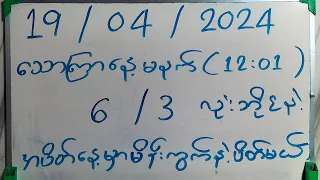 19 / 04 / 2024
သောကြာနေ့ မနက် ( 12:01 )
6 / 3 လုံးဘိုင်နဲ့
အပိတ်နေ့မှာမိန်းကွက်နဲ့ပိတ်မယ်